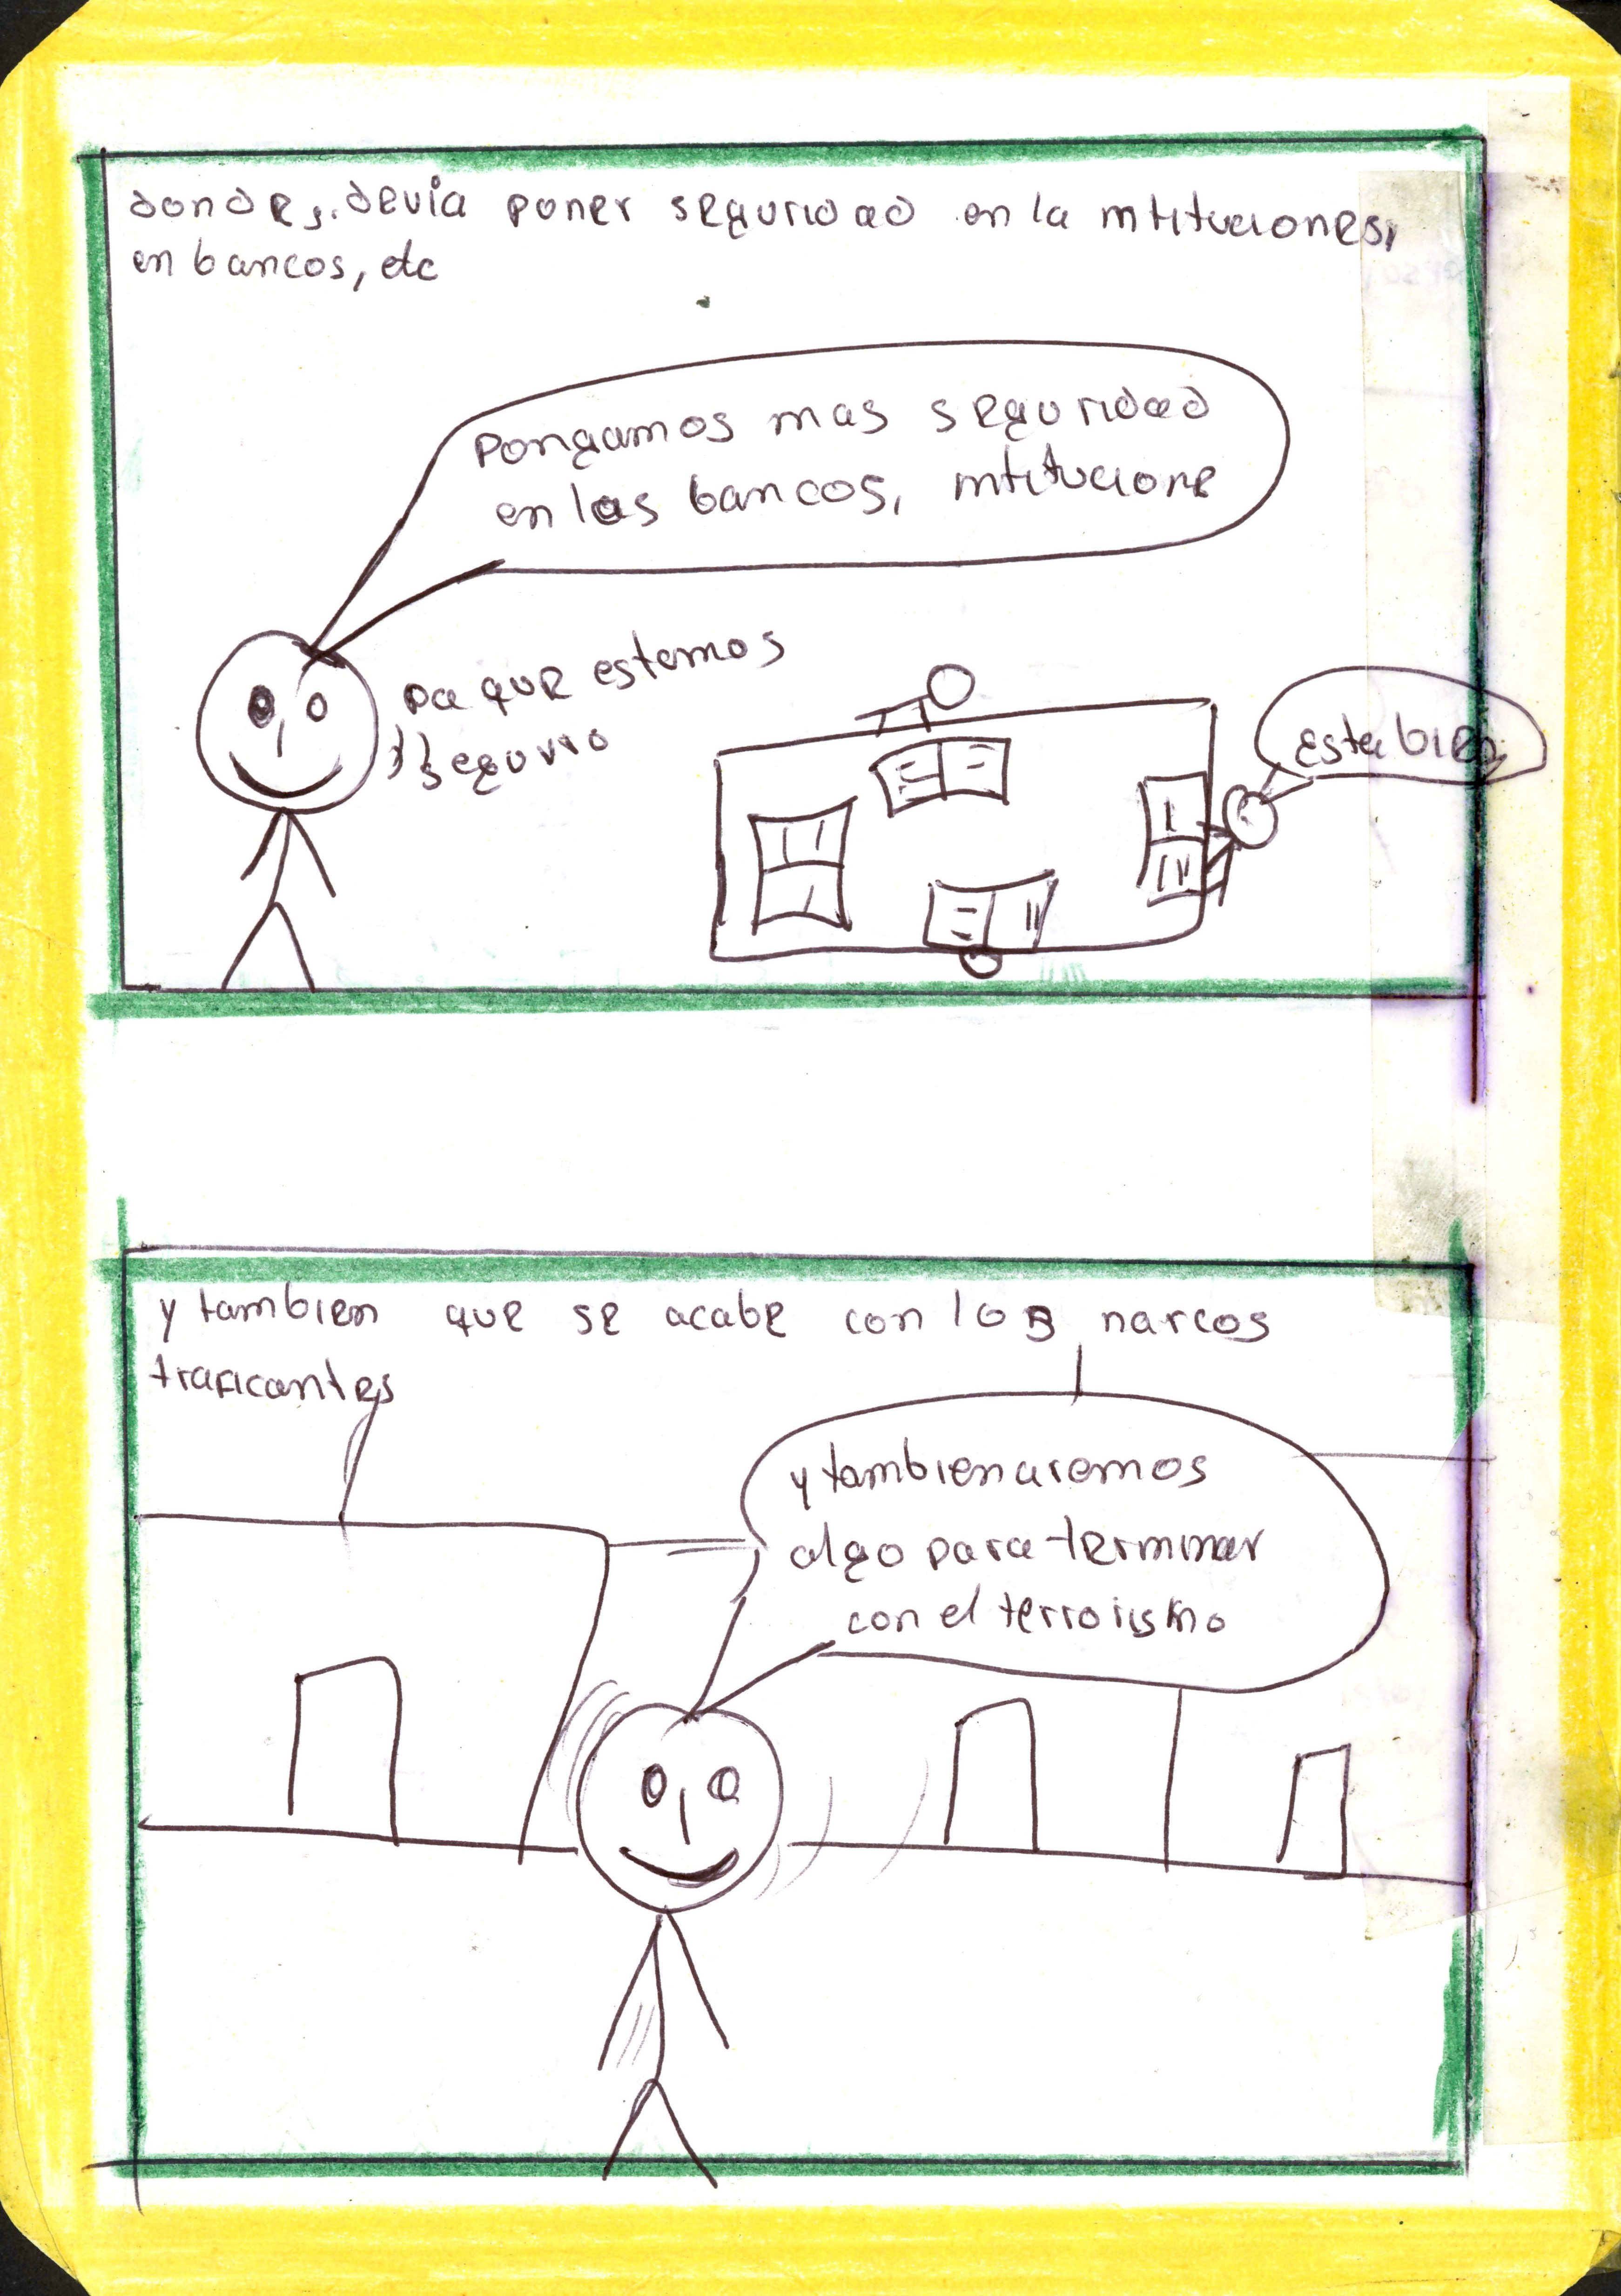 donde, devia poner seguridad en la intituciones,
en bancos, etc
Pongamos mas seguridad
en los bancos, intitucione
pa que estemos
segurro
esta bien
y tambien que se acabe con los narcos
traficantes
y tambien aremos
algo para terminar
con el terrorismo